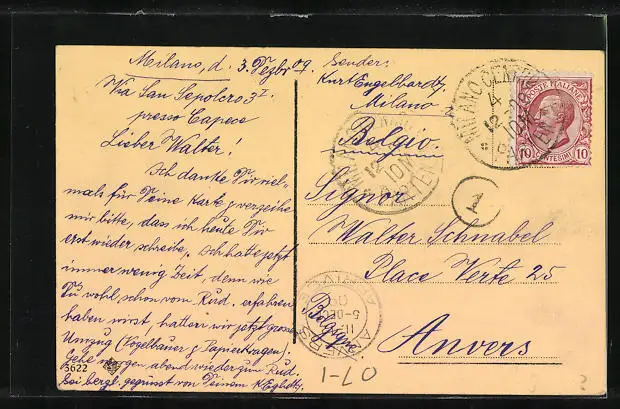 Milano, d. 3. Dezbr 09.
Via San Sepolcro 3 I.
presso Capece
Lieber Walter!
Ich danke Dir viel-
mals für Deine Karte u. verzeihe
mir bitte, dass ich heute Dir
erst wieder schreibe. Ich hatte jetzt
immer wenig Zeit, denn wie
Du wohl schon vom Rud. erfahren
haben wirst, hatten wir jetzt grossen
Umzug (Vogelbauer & Papierkragen)
Gehe morgen abend wieder zum Rud.
Sei herzl. gegrüsst von Deinem K. Eglhdt.
3622
Sender:
Kurt Engelhardt,
Milano
Belgio.
Signor
Walter Schnabel
Place Verte 25
Anvers
Belgique
MILANO CENTRO
4
12
POSTE ITALIANE
10 CENTESIMI 10
1
ANVERS
5-DEC
09
07-1